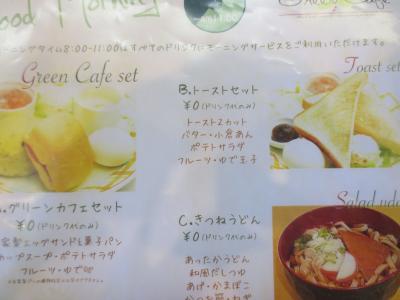 ood Morning
ーニングタイム8:00-11:00はすべてのドリンクにモーニングサービスをご利用いただけます。
Green Cafe set
Toast set
B.トーストセット
¥0(ドリンク代のみ)
トースト2カット
バター・小倉あん
ポテトサラダ
フルーツ・ゆで玉子
.グリーンカフェセット
¥0(ドリンク代のみ)
家製エッグサンドと菓子パン
カップスープ・ポテトサラダ
フルーツ・ゆで
Salad udo
C.きつねうどん
¥0(ドリンク代のみ)
あったかうどん
和風だしつゆ
あげ・かまぼこ